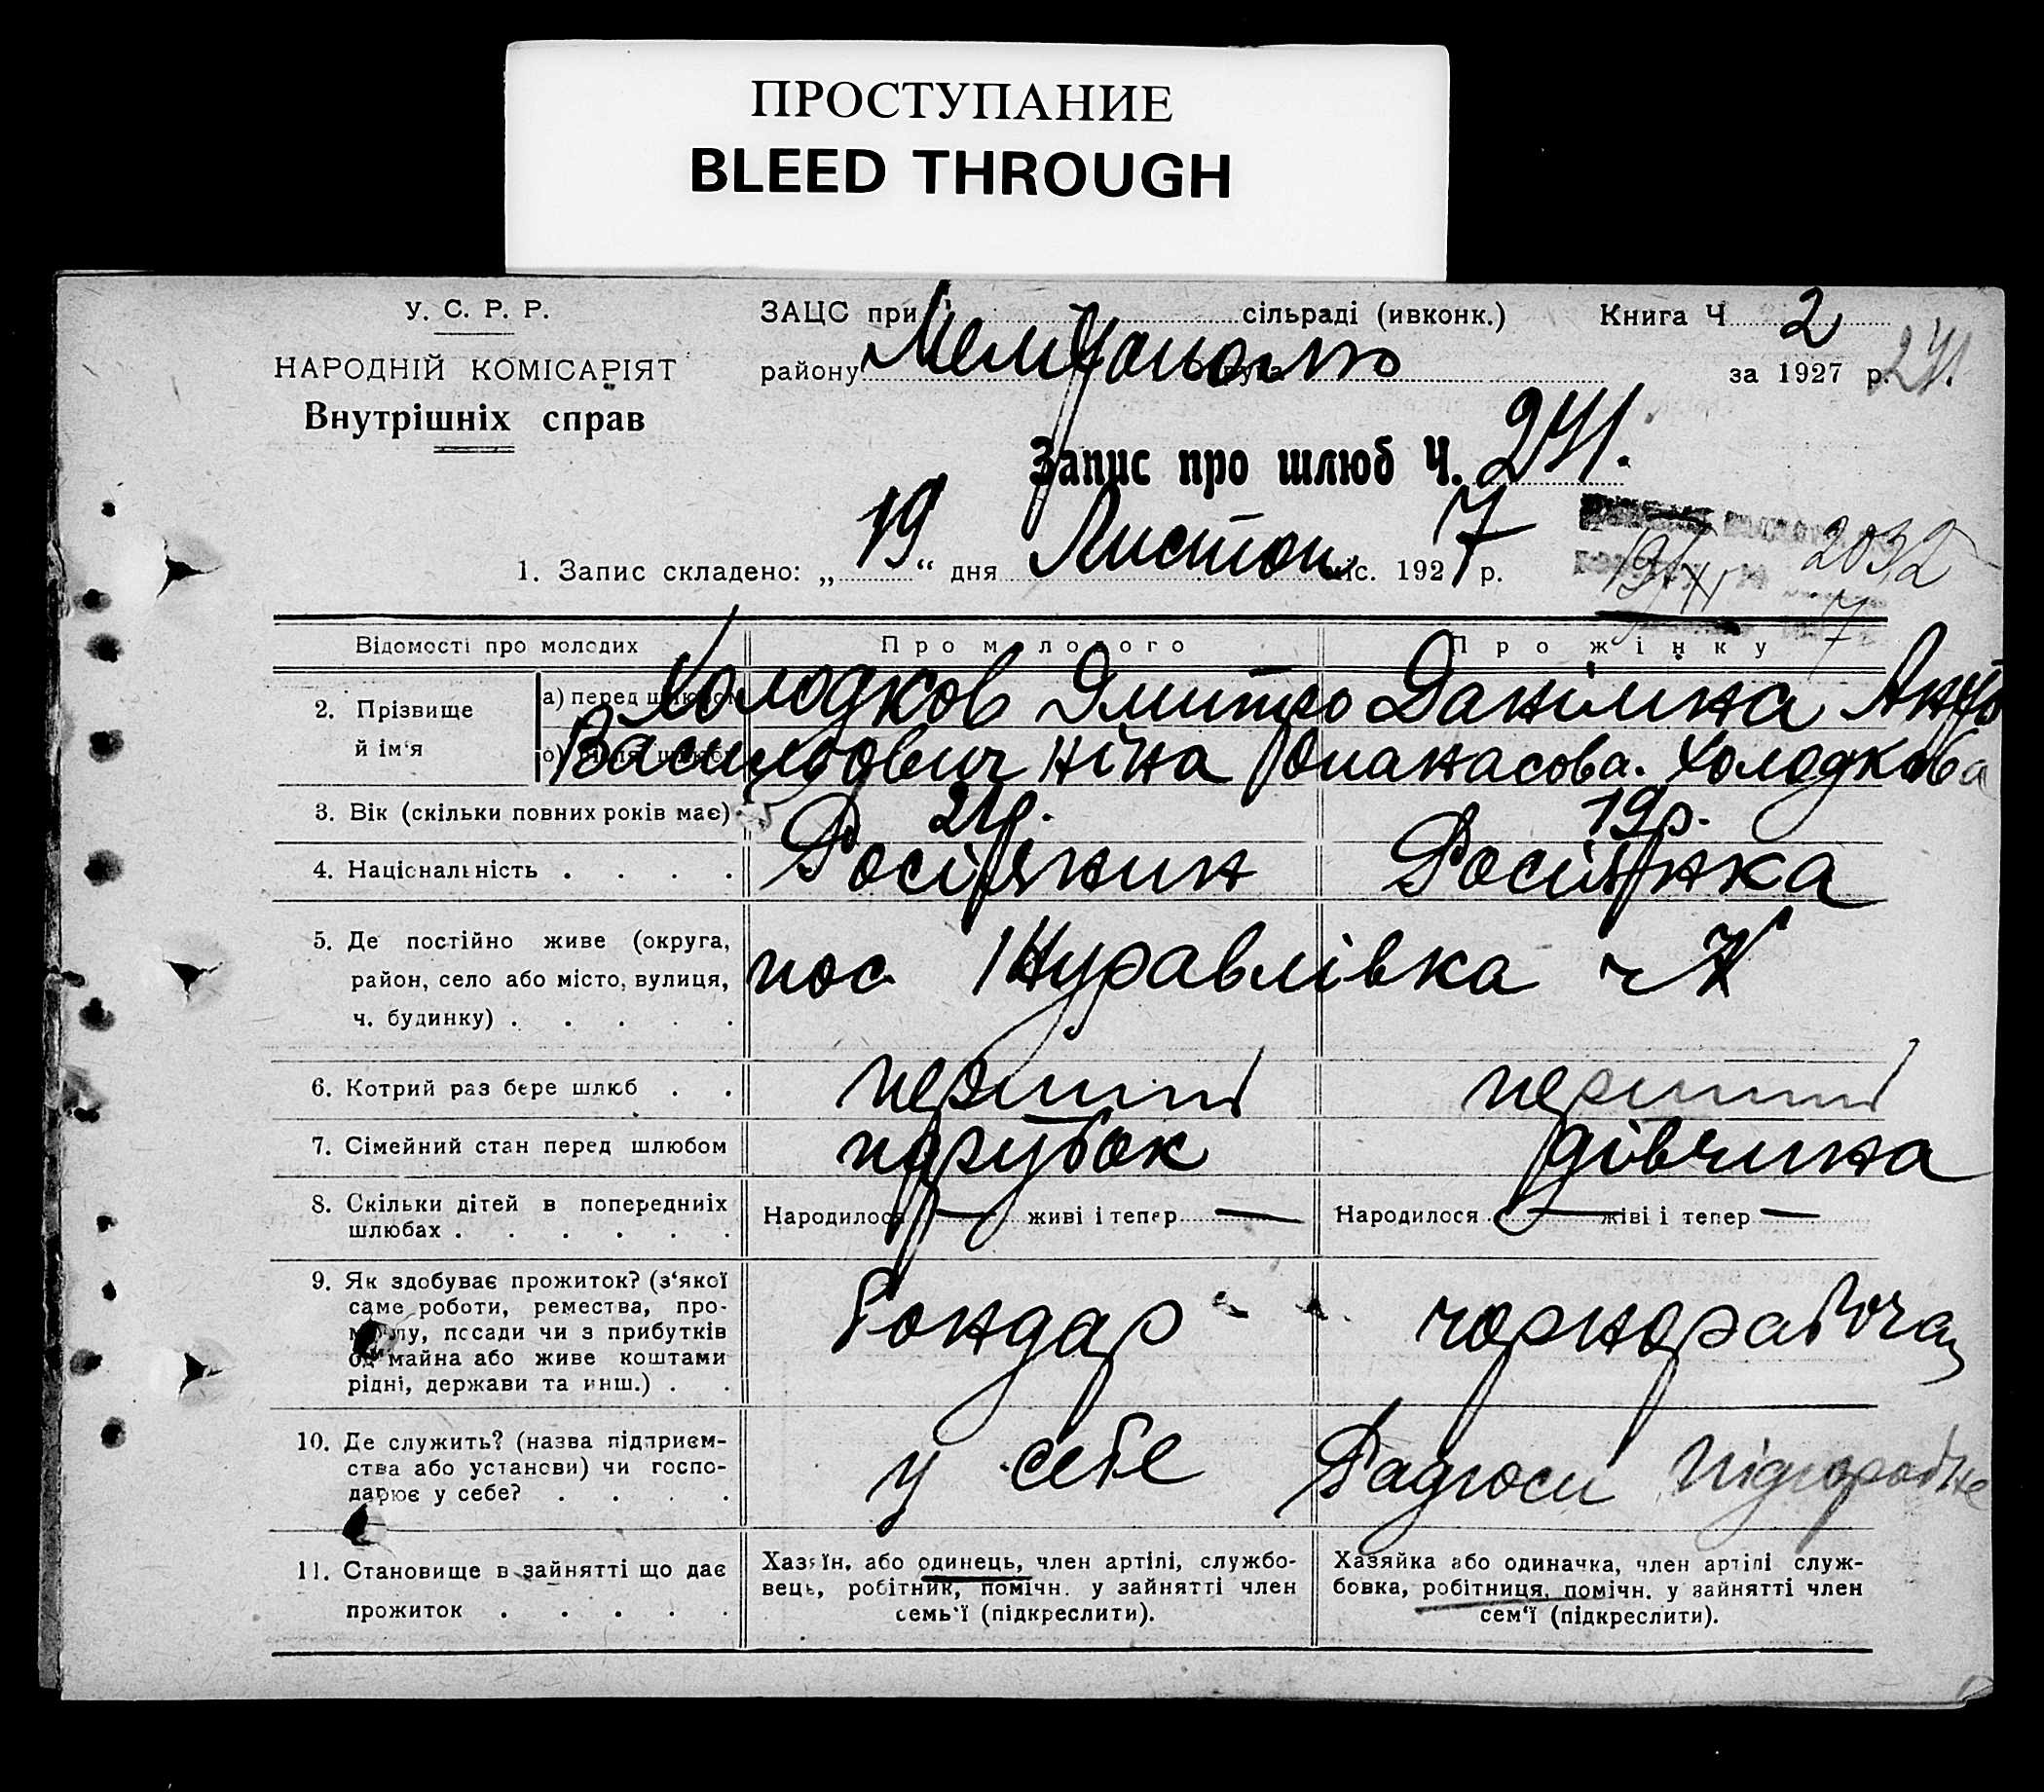 ПРОСТУПАНИЕ
BLEED THROUGH
У. С. Р. Р.
НАРОДНІЙ КОМІСАРІЯТ
Внутрішніх справ
ЗАЦС при сільраді (ивконк.)
району
Книга Ч 2
за 1927 р. 241.
Запис про шлюб Ч. 241.
1. Запис складено: „ 19 “ дня Листоп. міс. 1927 р.
2032
Відомості про молодих
Про молодого
Про жінку
2. Прізвище й ім‘я
а) перед шлюбом
Холодков Дмитро Данілина
Васильович ніна Опанасова. Холодкова
3. Вік (скільки повних років має) 21р. 19р.
4. Національність . . . . Росіянин Росіянка
5. Де постійно живе (округа,
район, село або місто, вулиця,
ч. будинку) . . . . .
пос Журавлівка ч
6. Котрий раз бере шлюб . . перший перший
7. Сімейний стан перед шлюбом парубок дівчина
8. Скільки дітей в попередниіх
шлюбах . . . . . .
Народилося — живі і тепер — Народилося — живі і тепер —
9. Як здобуває прожиток? (з‘якої
саме роботи, ремества, про-
мислу, посади чи з прибутків
од майна або живе коштами
рідні, держави та инш.) . .
Бондар чорнорабоча
10. Де служить? (назва підприєм-
ства або установи) чи госпо-
дарює у себе? . . . .
у себе Радгосп Підгородне
11. Становище в зайнятті що дає
прожиток . . . . .
Хазяїн, або одинець, член артілі, службо-
вець, робітник, помічн. у зайнятті член
семь‘ї (підкреслити).
Хазяйка або одиначка, член артілі служ-
бовка, робітниця, помічн. у зайнятті член
сем‘ї (підкреслити).